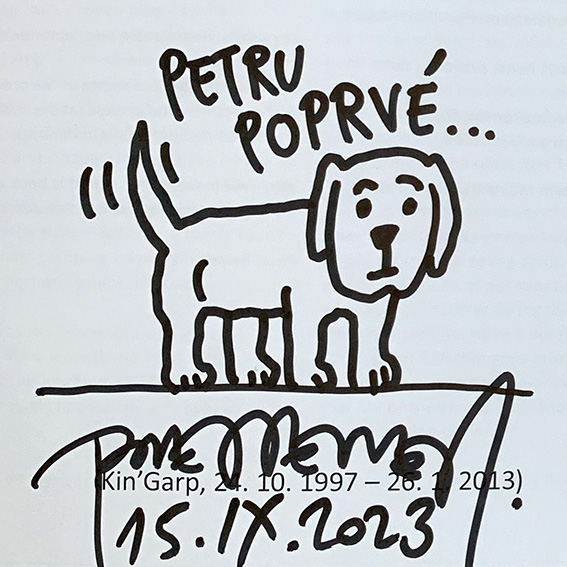 PETRU
POPRVÉ...
(Kin'Garp, 24. 10. 1997 – 26. 1. 2013)
15.IX.2023